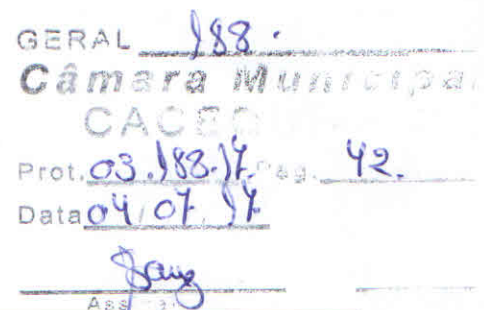 GERAL 188.
Câmara Municipa
CACEQ
Prot. 03.188.17. Pág. 42.
Data 04/07/17

Ass